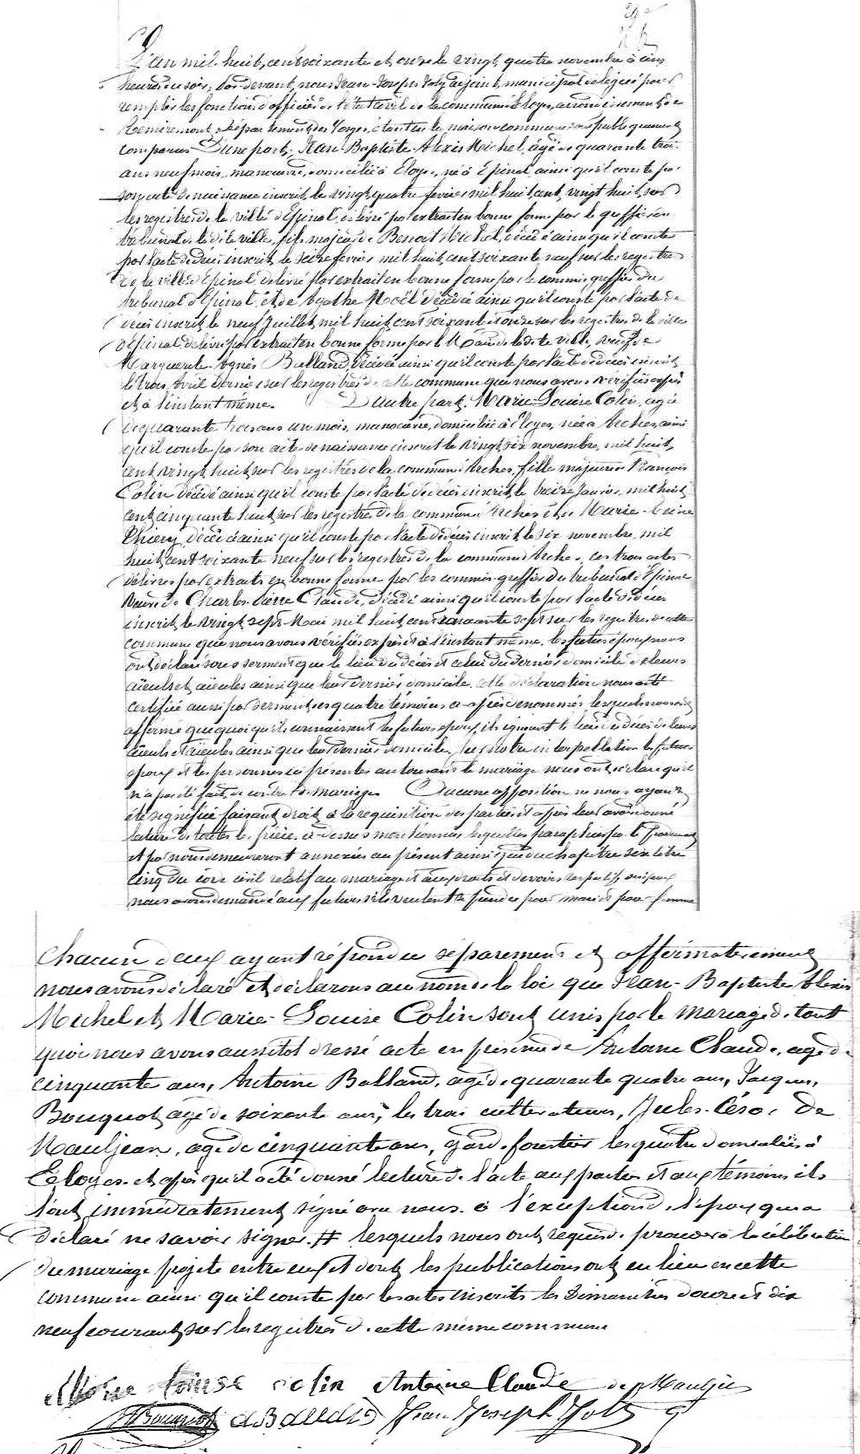 L'an mil huit cent soixante et onze le vingt quatre novembre à cinq
heures du soir, par devant, nous Jean-Joseph Joly adjoint municipal délégué pour
remplir les fonctions d'officier de l'état civil de la commune d'Eloyes, arrondissement de
Remiremont, département des Vosges, étant en la maison commune publiquement
comparus D'une part, Jean Baptiste Alexis Michel, âgé de quarante trois
ans neuf mois, manoeuvre, domicilié à Eloyes, né à Epinal, ainsi qu'il conste par
son acte de naissance inscrit le vingt quatre février mil huit cent vingt huit sur
les registres de la ville d'Epinal, délivré par extrait en bonne forme par le greffier du
tribunal de la dite ville, fils majeur de Benoit Michel, décédé ainsi qu'il conste
par l'acte de décès inscrit le seize février mil huit cent soixante neuf sur les registres
de la ville d'Epinal délivré par extrait en bonne forme par le commis greffier du
tribunal d'Epinal, et de Agathe Noël décédée ainsi qu'il conste par l'acte de
décès inscrit le neuf Juillet mil huit cent soixante et onze sur les registres de la ville
d'Epinal délivré par extrait en bonne forme par le Maire de la dite ville, veuf de
Marguerite Agnès Balland, décédée ainsi qu'il conste par l'acte de décès inscrit
le trois Avril dernier sur les registres de cette commune que nous avons vérifiés exprès
et à l'instant même. D'autre part, Marie-Louise Colin, agée
de quarante trois ans un mois, manoeuvre, domiciliée à Eloyes, née à Arches, ainsi
qu'il conste par son acte de naissance inscrit le vingt six novembre, mil huit
cent vingt huit sur les registres de la commune d'Arches, fille majeure de François
Colin décédé ainsi qu'il conste par l'acte de décès inscrit le treize Janvier, mil huit
cent cinquante huit sur les registres de la commune d'Arches et de Marie-Anne
Thiery, décédée ainsi qu'il conste par l'acte de décès inscrit le six novembre, mil
huit cent soixante neuf sur les registres de la commune d'Arches, ces trois actes
délivrés par extraits en bonne forme par les commis greffiers du tribunal d'Epinal
Veuve de Charles-Pierre Claude, décédé ainsi qu'il conste par l'acte de décès
inscrit le vingt sept Mai mil huit cent soixante sept sur les registres de cette
commune que nous avons vérifiés exprès et à l'instant même. les futurs époux nous
ont déclaré sous serment que le lieu du décès et celui du dernier domicile de leurs
aïeuls et aïeules ainsi que leur dernier domicile, cette déclaration nous a été
certifiée aussi par serment par les quatre témoins ci-après dénommés lesquels nous ont
affirmé que quoiqu'ils connaissent les futurs époux, ils ignorent le lieu du décès de leurs
aïeuls et aïeules ainsi que leur dernier domicile, sur notre interpellation les futurs
époux et les personnes ici présentes autorisant le mariage nous ont déclaré qu'il
n'a pas été fait de contrat de mariage. Aucune opposition ne nous ayant
été signifiée faisant droit à la réquisition des parties et après leur avoir donné
lecture de toutes les pièces ci-dessus mentionnées lesquelles paraphées par le
et par nous demeureront annexées au présent ainsi que du chapitre six titre
cinq du code civil relatif au mariage et aux droits et devoirs respectifs des époux
nous avons demandé aux futurs s'ils veulent se prendre pour mari et pour femme
chacun d'eux ayant répondu séparément et affirmativement
nous avons déclaré et déclarons au nom de la loi que Jean-Baptiste Alexis
Michel et Marie-Louise Colin sont unis par le mariage de tout
quoi nous avons aussitot dressé acte en présence de Antoine Claude, agé de
cinquante ans, Antoine Balland, agé de quarante quatre ans, Jacques,
Bouquot, agé de soixante ans, les trois cultivateurs, Jules-César de
Mauljean, agé de cinquante ans, garde forestier les quatre domiciliés à
Eloyes. et après qu'il a été donné lecture de l'acte aux parties et aux témoins ils
l'ont immédiatement signé avec nous. à l'exception de l'époux qui a
déclaré ne savoir signer. # lesquels nous ont requis de procéder à la célébration
du mariage projeté entre eux et dont les publications ont eu lieu en cette
commune ainsi qu'il conste par les actes inscrits les Dimanches douze et dix
neuf courant, sur les registres de cette même commune
Marie Louise Colin Antoine Claude de Mauljean
Bouquot A Balland Jean Joseph Joly